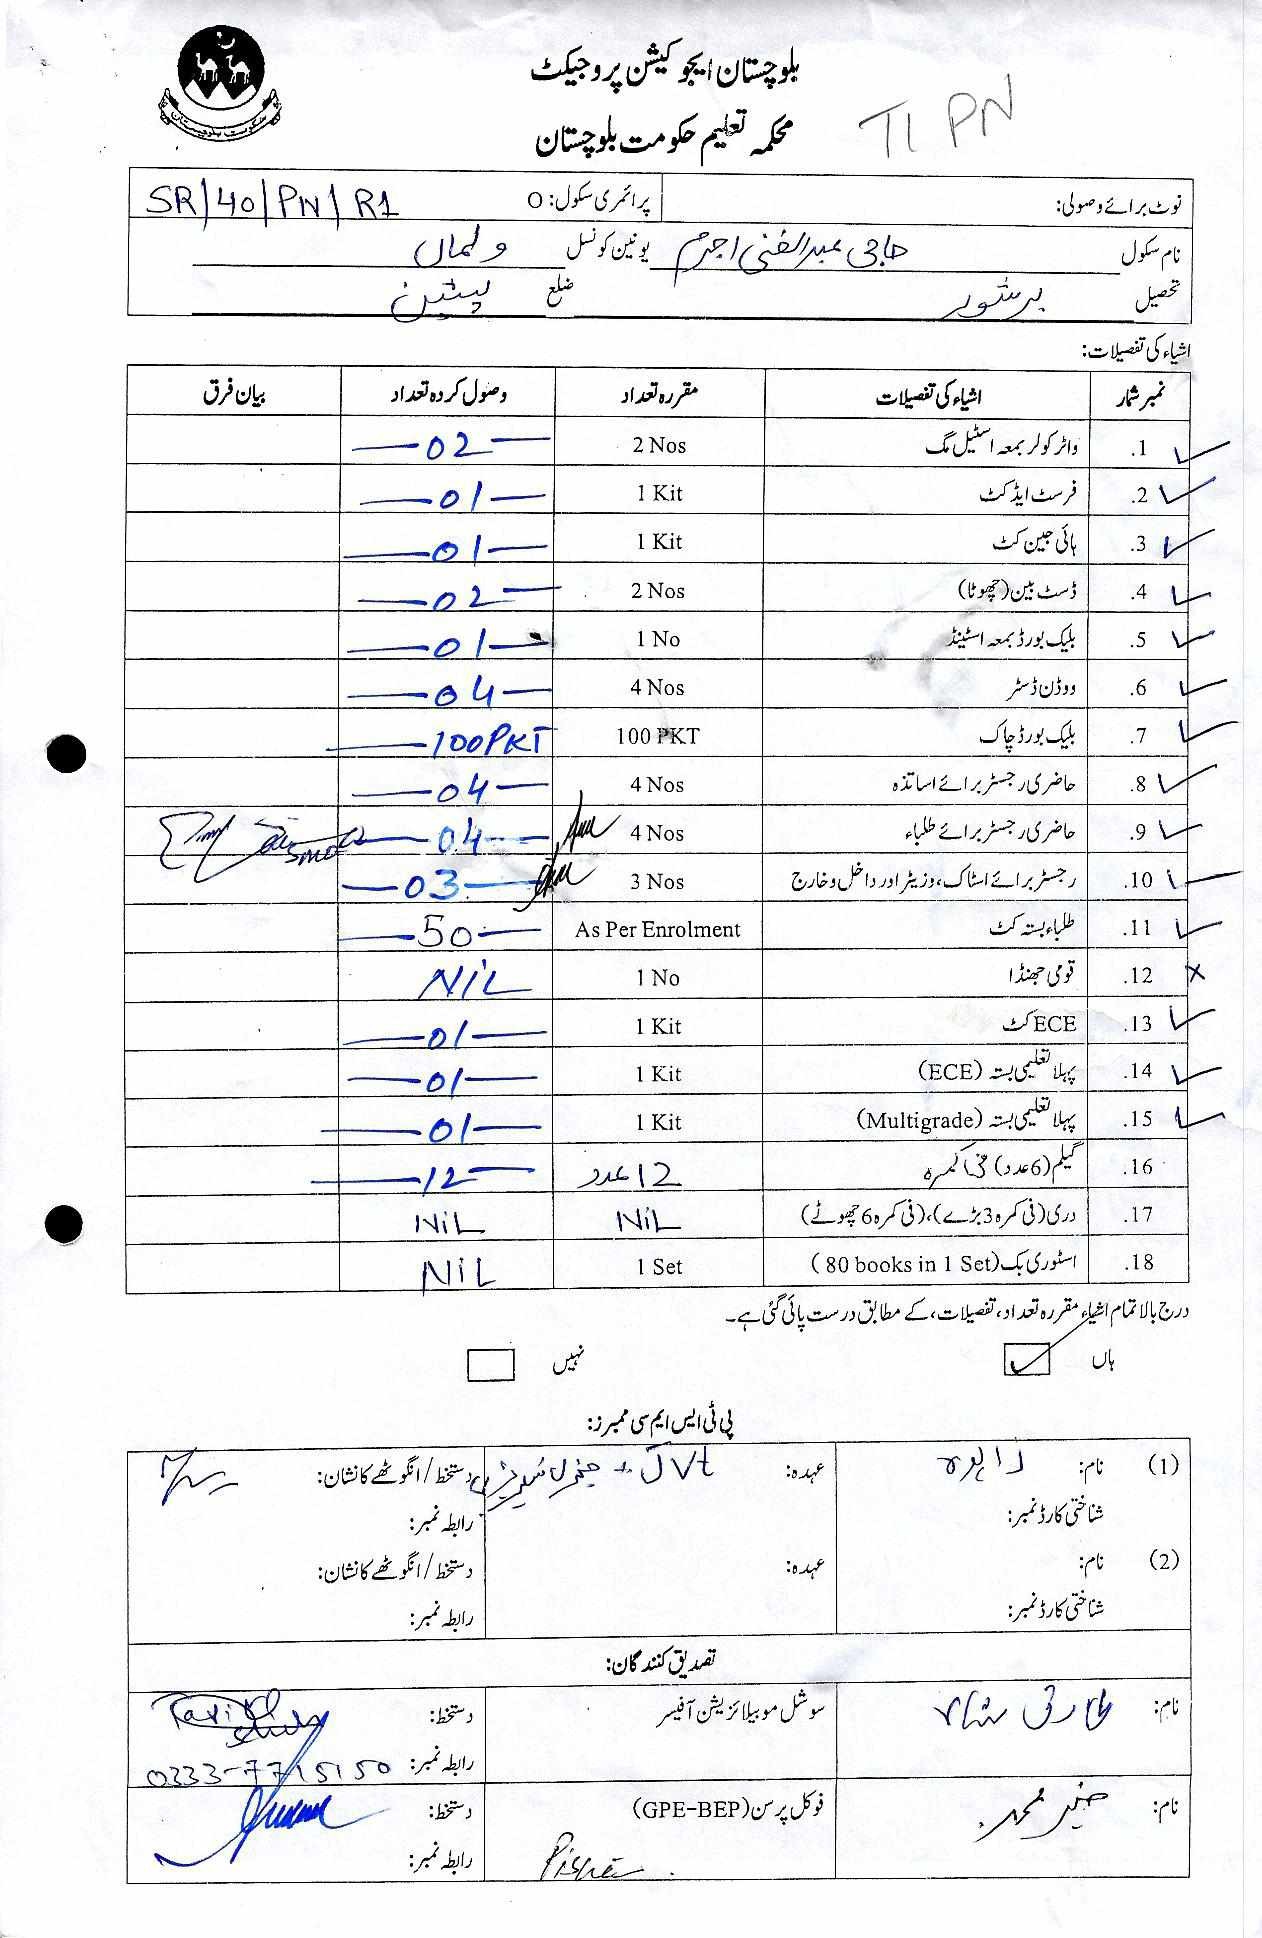 بلوچستان ایجوکیشن پروجیکٹ
محکمہ تعلیم حکومت بلوچستان
TI PN
نوٹ برائے وصولی: پرائمری سکول: O SR/40/PN/R1
نام سکول حاجی عبدالغنی اجرم یونین کونسل ولماں
تحصیل برشور ضلع پشین
اشیاء کی تفصیلات:
نمبر شمار اشیاء کی تفصیلات مقررہ تعداد وصول کردہ تعداد بیان فرق
1. واٹر کولر بمعہ اسٹیل مگ 2 Nos 02
2. فرسٹ ایڈ کٹ 1 Kit 01
3. ہائی جین کٹ 1 Kit 01
4. ڈسٹ بین (چھوٹا) 2 Nos 02
5. بلیک بورڈ بمعہ اسٹینڈ 1 No 01
6. ووڈن ڈسٹر 4 Nos 04
7. بلیک بورڈ چاک 100 PKT 100PKT
8. حاضری رجسٹر برائے اساتذہ 4 Nos 04
9. حاضری رجسٹر برائے طلباء 4 Nos 04
10. رجسٹر برائے اسٹاک، وزیٹر اور داخل و خارج 3 Nos 03
11. طلباء بستہ کٹ As Per Enrolment 50
12. قومی جھنڈا 1 No NiL
13. ECE کٹ 1 Kit 01
14. پہلا تعلیمی بستہ (ECE) 1 Kit 01
15. پہلا تعلیمی بستہ (Multigrade) 1 Kit 01
16. گیلم (6 عدد) فی کمرہ 12 عدد 12
17. دری (فی کمرہ 3 بڑے)، (فی کمرہ 6 چھوٹے) NiL NiL
18. اسٹوری بک (80 books in 1 Set) 1 Set NiL
درج بالا تمام اشیاء مقررہ تعداد، تفصیلات، کے مطابق درست پائی گئی ہے۔
ہاں نہیں
پی ٹی ایس ایم سی ممبرز:
(1) نام: زاہدہ عہدہ: JVt + دستخط / انگوٹھے کا نشان:
شناختی کارڈ نمبر: رابطہ نمبر:
(2) نام: عہدہ: دستخط / انگوٹھے کا نشان:
شناختی کارڈ نمبر: رابطہ نمبر:
تصدیق کنندگان:
نام: طارق شاہ سوشل موبیلائزیشن آفیسر دستخط:
رابطہ نمبر: 0333-7715150
نام: محمد فوکل پرسن (GPE-BEP) دستخط:
رابطہ نمبر: